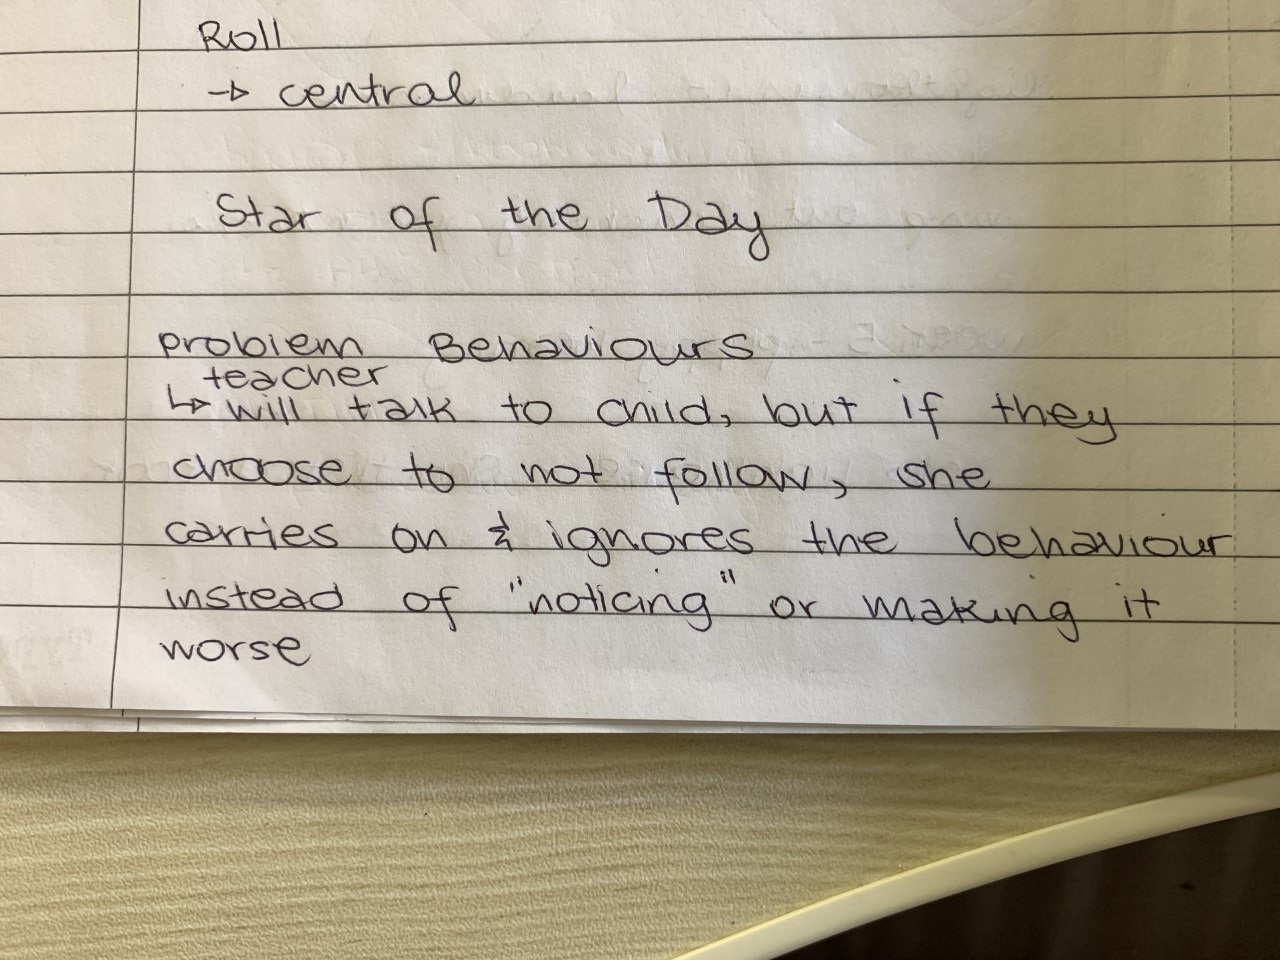 Roll
→ central
Star of the Day
problem Behaviours
teacher
↳ will talk to child, but if they
choose to not follow, she
carries on & ignores the behaviour
instead of "noticing" or making it
worse